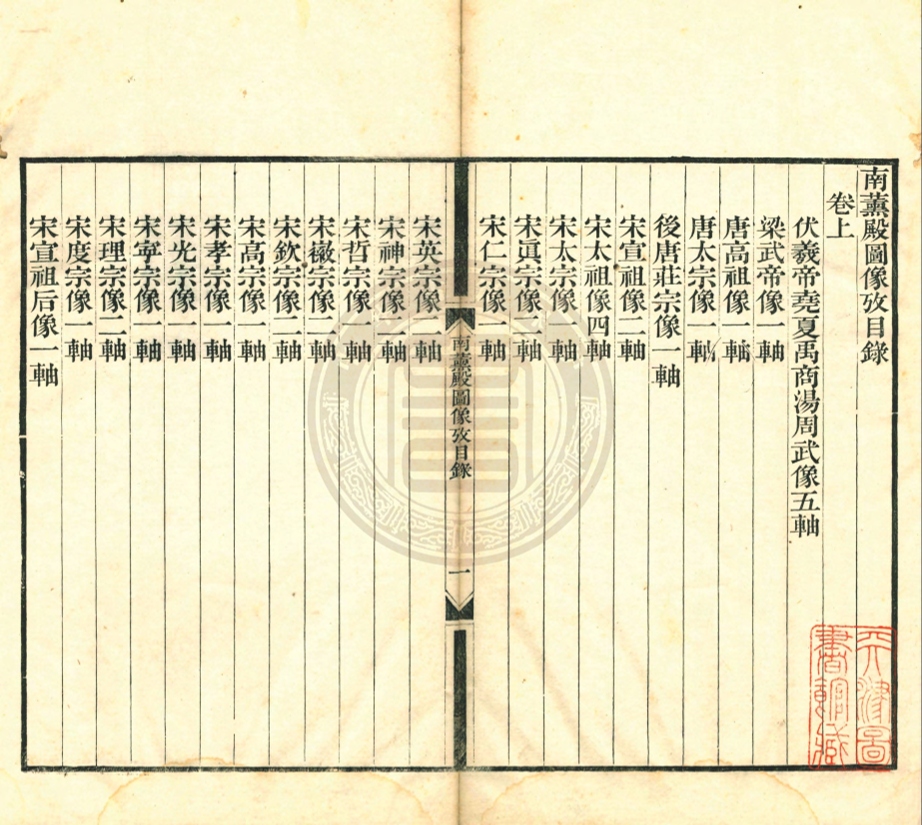 南薰殿圖像攷目錄
卷上
伏羲帝堯夏禹商湯周武像五軸
梁武帝像一軸
唐高祖像一軸
唐太宗像一軸
後唐莊宗像一軸
宋宣祖像二軸
宋太祖像四軸
宋太宗像一軸
宋眞宗像一軸
宋仁宗像一軸
南薰殿圖像攷目錄
一
宋英宗像一軸
宋神宗像二軸
宋哲宗像一軸
宋徽宗像一軸
宋欽宗像二軸
宋高宗像一軸
宋孝宗像一軸
宋光宗像一軸
宋寧宗像一軸
宋理宗像二軸
宋度宗像一軸
宋宣祖后像一軸
天津圖
書館藏